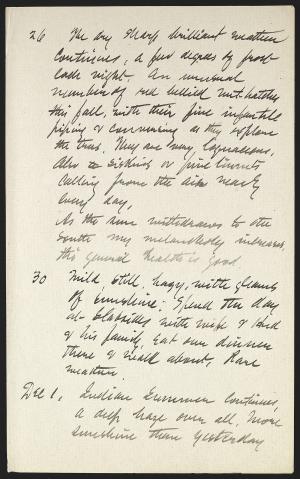 26 The dry sharp brilliant weather
continues, a few degrees of frost
each night. An unusual
number of red bellied nut-hatches
this fall, with their fine infantile
piping & conversing as they explore
the trees. They are very loquacious.
Also siskins or pine linnets
calling from the air nearly
every day.
As the sun withdraws to the
South my melancholy increases,
tho' general health is good
30 Mild, still, hazy, with gleams
of sunshine; Spend the day
at Slabsides with wife &
& his family, Eat our dinner
there & walk about. Rare
weather
Dec 1, Indian Summer continues,
a deep haze over all. More
sunshine than yesterday